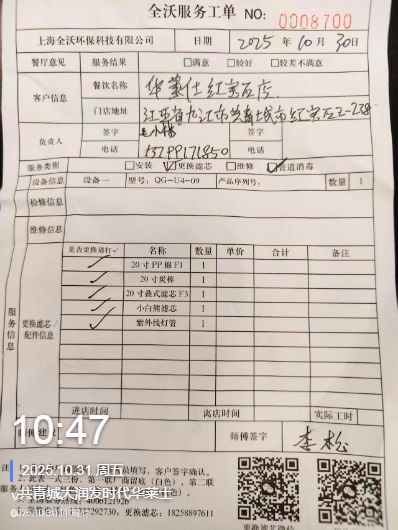 全沃服务工单 NO: 0008700
上海全沃环保科技有限公司 日期 2025 年 10 月 30日
餐厅意见 服务结果 □满意 □较好 □较差不满意
客户信息 餐饮名称 华莱士红宝石店
门店地址 江西省九江市共青城市红宝石2-238
负责人 签字 签字
电话 电话
服务类别 □安装 ☑更换滤芯 □维修 ☑管道消毒
设备信息 设备一 型号: QG-U4-09 产品序列号: 数量 1
检修信息
维修信息
服务信息
更换滤芯/配件信息
是否更换请打✓ 名称 数量 单价 合计 备注
✓ 20寸PP棉F1 1
✓ 20寸炭棒 1
✓ 20寸叠式滤芯F3 1
✓ 小白熊滤芯 1
✓ 紫外线灯管 1
进店时间 离店时间 实际工时
师傅签字 李松
10:47
2025.10.31 周五
共青城大润发时代华莱士
员填写，客户签字确认。
2. 此表一式三份，第一联厂商留底（白色），第二联
更换滤芯: 18258897611